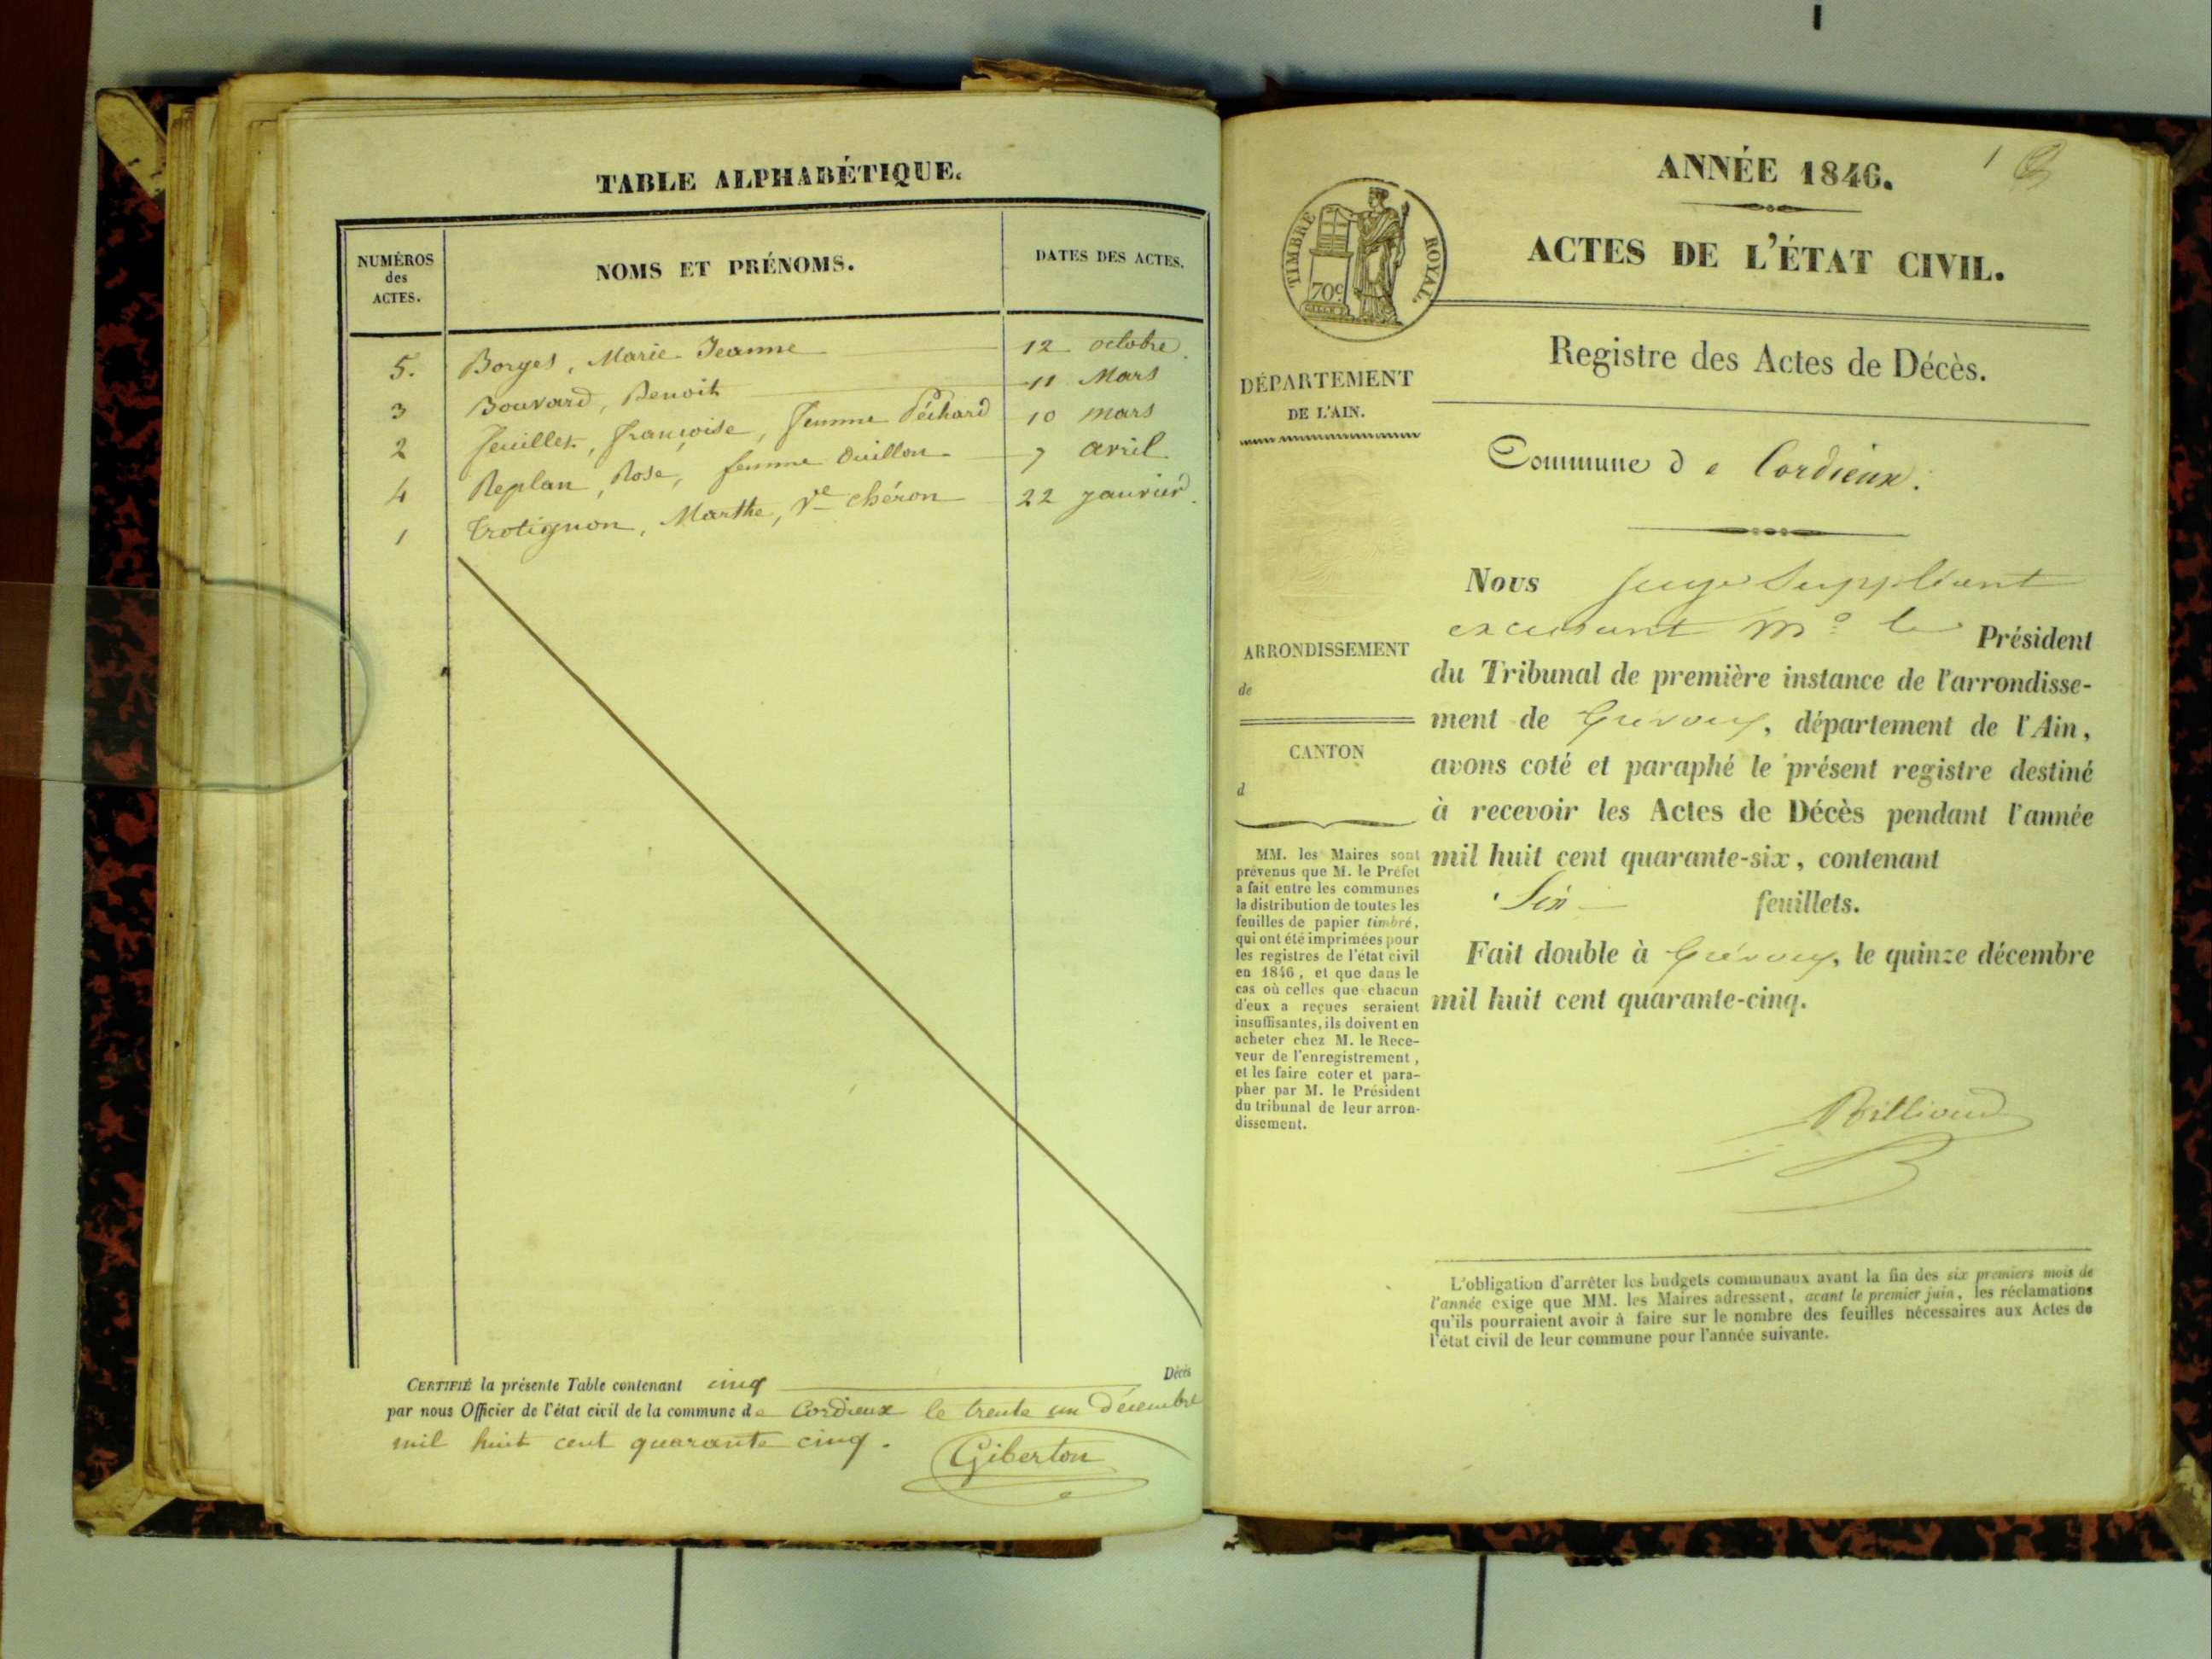 TABLE ALPHABÉTIQUE.
NUMÉROS
des
ACTES.
NOMS ET PRÉNOMS.
DATES DES ACTES.
5. Borges, Marie-Jeanne 12 octobre.
3 Bouvard, Benoit 11 Mars
2 Feuillet, françoise, femme Péchard 10 mars
4 Replan, Rose, femme Ouillon 7 avril
1 Trotignon, Marthe, Ve chéron 22 janvier.
CERTIFIÉ la présente Table contenant cinq Décès
par nous Officier de l'état civil de la commune de Cordieux le trente un décembre
mil huit cent quarante cinq.
Giberton
1
ANNÉE 1846.
TIMBRE ROYAL.
70c
ACTES DE L'ÉTAT CIVIL.
Registre des Actes de Décès.
DÉPARTEMENT
DE L'AIN.
Commune de Cordieux.
ARRONDISSEMENT
de
CANTON
d
MM. les Maires sont
prévenus que M. le Préfet
a fait entre les communes
la distribution de toutes les
feuilles de papier timbré,
qui ont été imprimées pour
les registres de l'état civil
en 1846, et que dans le
cas où celles que chacun
d'eux a reçues seraient
insuffisantes, ils doivent en
acheter chez M. le Rece-
veur de l'enregistrement,
et les faire coter et para-
pher par M. le Président
du tribunal de leur arron-
dissement.
Nous juge Suppléant
Mr le Président
du Tribunal de première instance de l'arrondisse-
ment de Trévoux, département de l'Ain,
avons coté et paraphé le présent registre destiné
à recevoir les Actes de Décès pendant l'année
mil huit cent quarante-six, contenant
Six feuillets.
Fait double à Trévoux, le quinze décembre
mil huit cent quarante-cinq.
L'obligation d'arrêter les budgets communaux avant la fin des six premiers mois de
l'année exige que MM. les Maires adressent, avant le premier juin, les réclamations
qu'ils pourraient avoir à faire sur le nombre des feuilles nécessaires aux Actes de
l'état civil de leur commune pour l'année suivante.